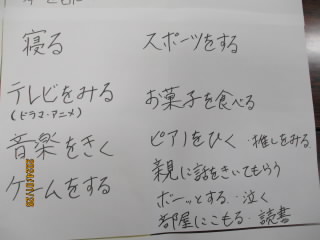 寝る
テレビをみる
(ドラマ・アニメ)
音楽をきく
ゲームをする
スポーツをする
お菓子を食べる
ピアノをひく ・推しをみる
親に話をきいてもらう
ボーッとする ・泣く
部屋にこもる ・読書